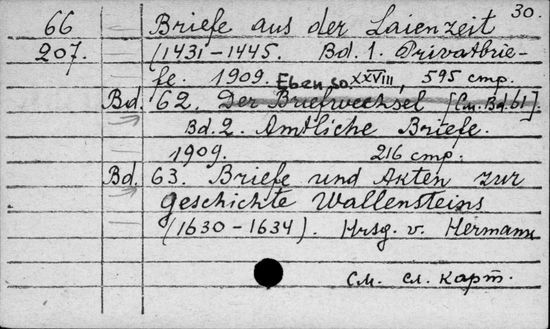 30.
66 Briefe aus der Laienzeit
207. (1431–1445. Bd. 1. Privatbrie-
fe. 1909. XXVIII, 595 стр.
Ebenso.
Bd. 62. Der Briefwechsel [См. Bd. 61].
Bd. 2. Amtliche Briefe.
1909. 216 стр.
Bd. 63. Briefe und Akten zur
Geschichte Wallensteins
(1630–1634). Hrsg. v. Hermann
См. сл. карт.